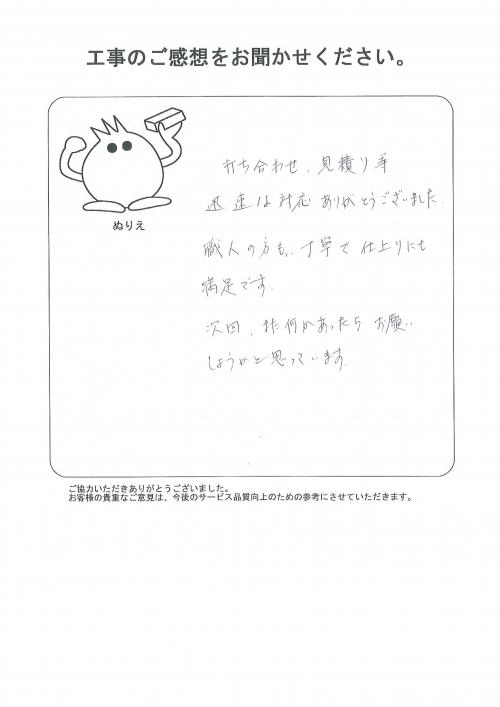 工事のご感想をお聞かせください。
ぬりえ
打ち合わせ、見積り等
迅速な対応ありがとうございました。
職人の方も、丁寧で仕上りにも
満足です。
次回、また何かあったらお願い
しようかと思っています。
ご協力いただきありがとうございました。
お客様の貴重なご意見は、今後のサービス品質向上のための参考にさせていただきます。